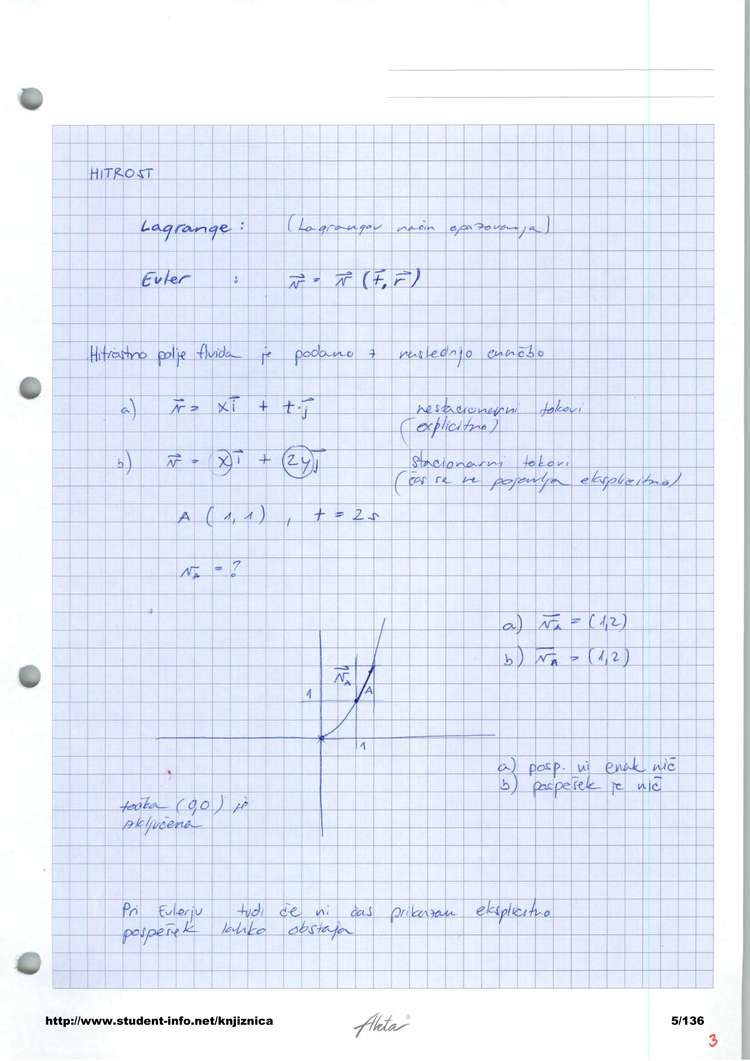 HITROST
Lagrange : (Lagrangov način opazovanja)
Euler : v⃗ = v⃗ (t⃗, r⃗)
Hitrostno polje fluida je podano z naslednjo enačbo
a) v⃗ = x i⃗ + t · j⃗ nestacionarni tokovi
(explicitno)
b) v⃗ = x i⃗ + 2y j⃗ stacionarni tokovi
(čas se ne pojavlja eksplicitno)
A (1,1) , t = 2s
v⃗A = ?
a) v⃗A = (1,2)
b) v⃗A = (1,2)
v⃗A
A
1
1
a) posp. ni enak nič
b) pospešek je nič
točka (0,0) je
izključena
Pri Eulerju tudi če ni čas prikazan eksplicitno
pospešek lahko obstaja
http://www.student-info.net/knjiznica
Akta
5/136
3